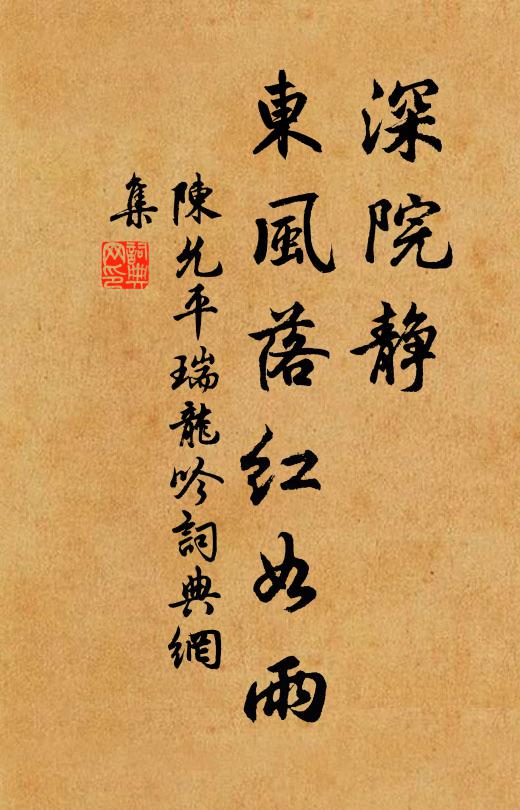 深院静
東風落红如雨
陳允平瑞龍吟詞典網
集
詞典
网印